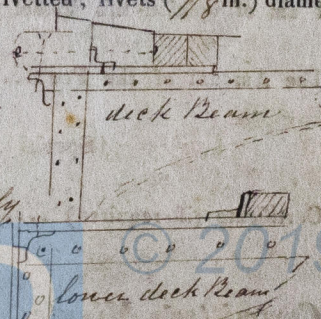 ivetted, rivets (7/8 in.) diame
deck Beam
ly
© 2019
lower deck Beam